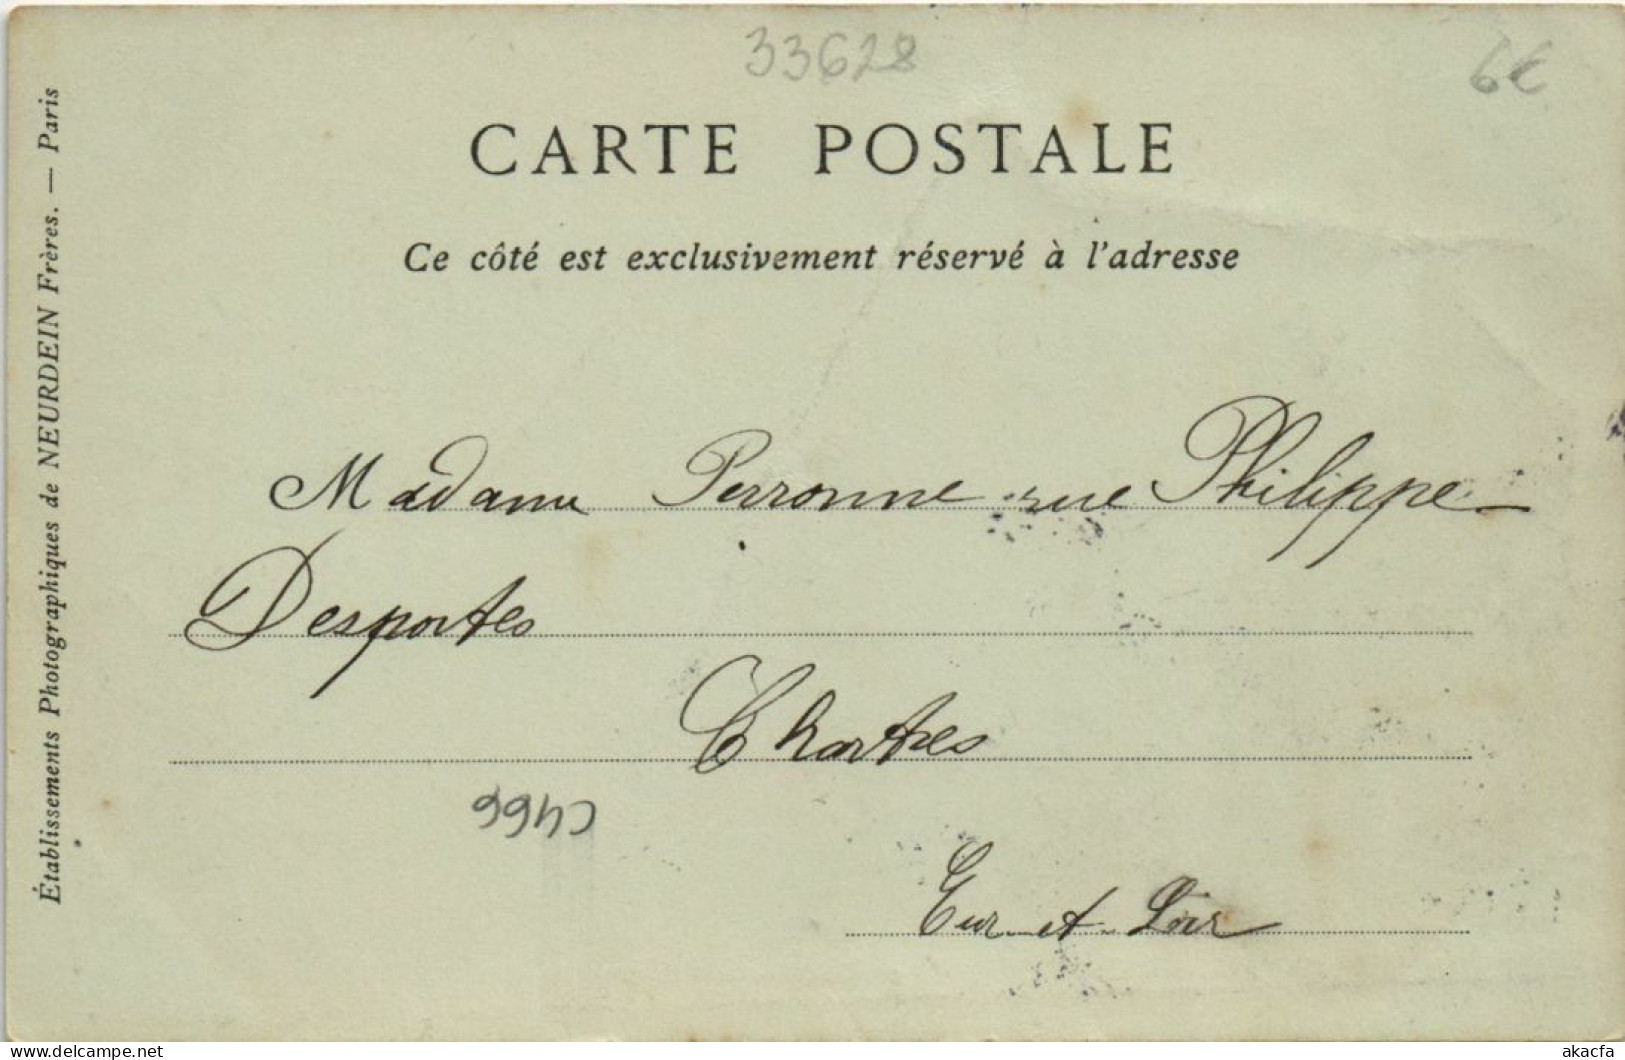 33628
6€
CARTE POSTALE
Ce côté est exclusivement réservé à l'adresse
Établissements Photographiques de NEURDEIN Frères. — Paris
Madame Perronne rue Philippe
Desportes
Chartres
C466
Eur-et-Loir
delcampe.net
akacfa